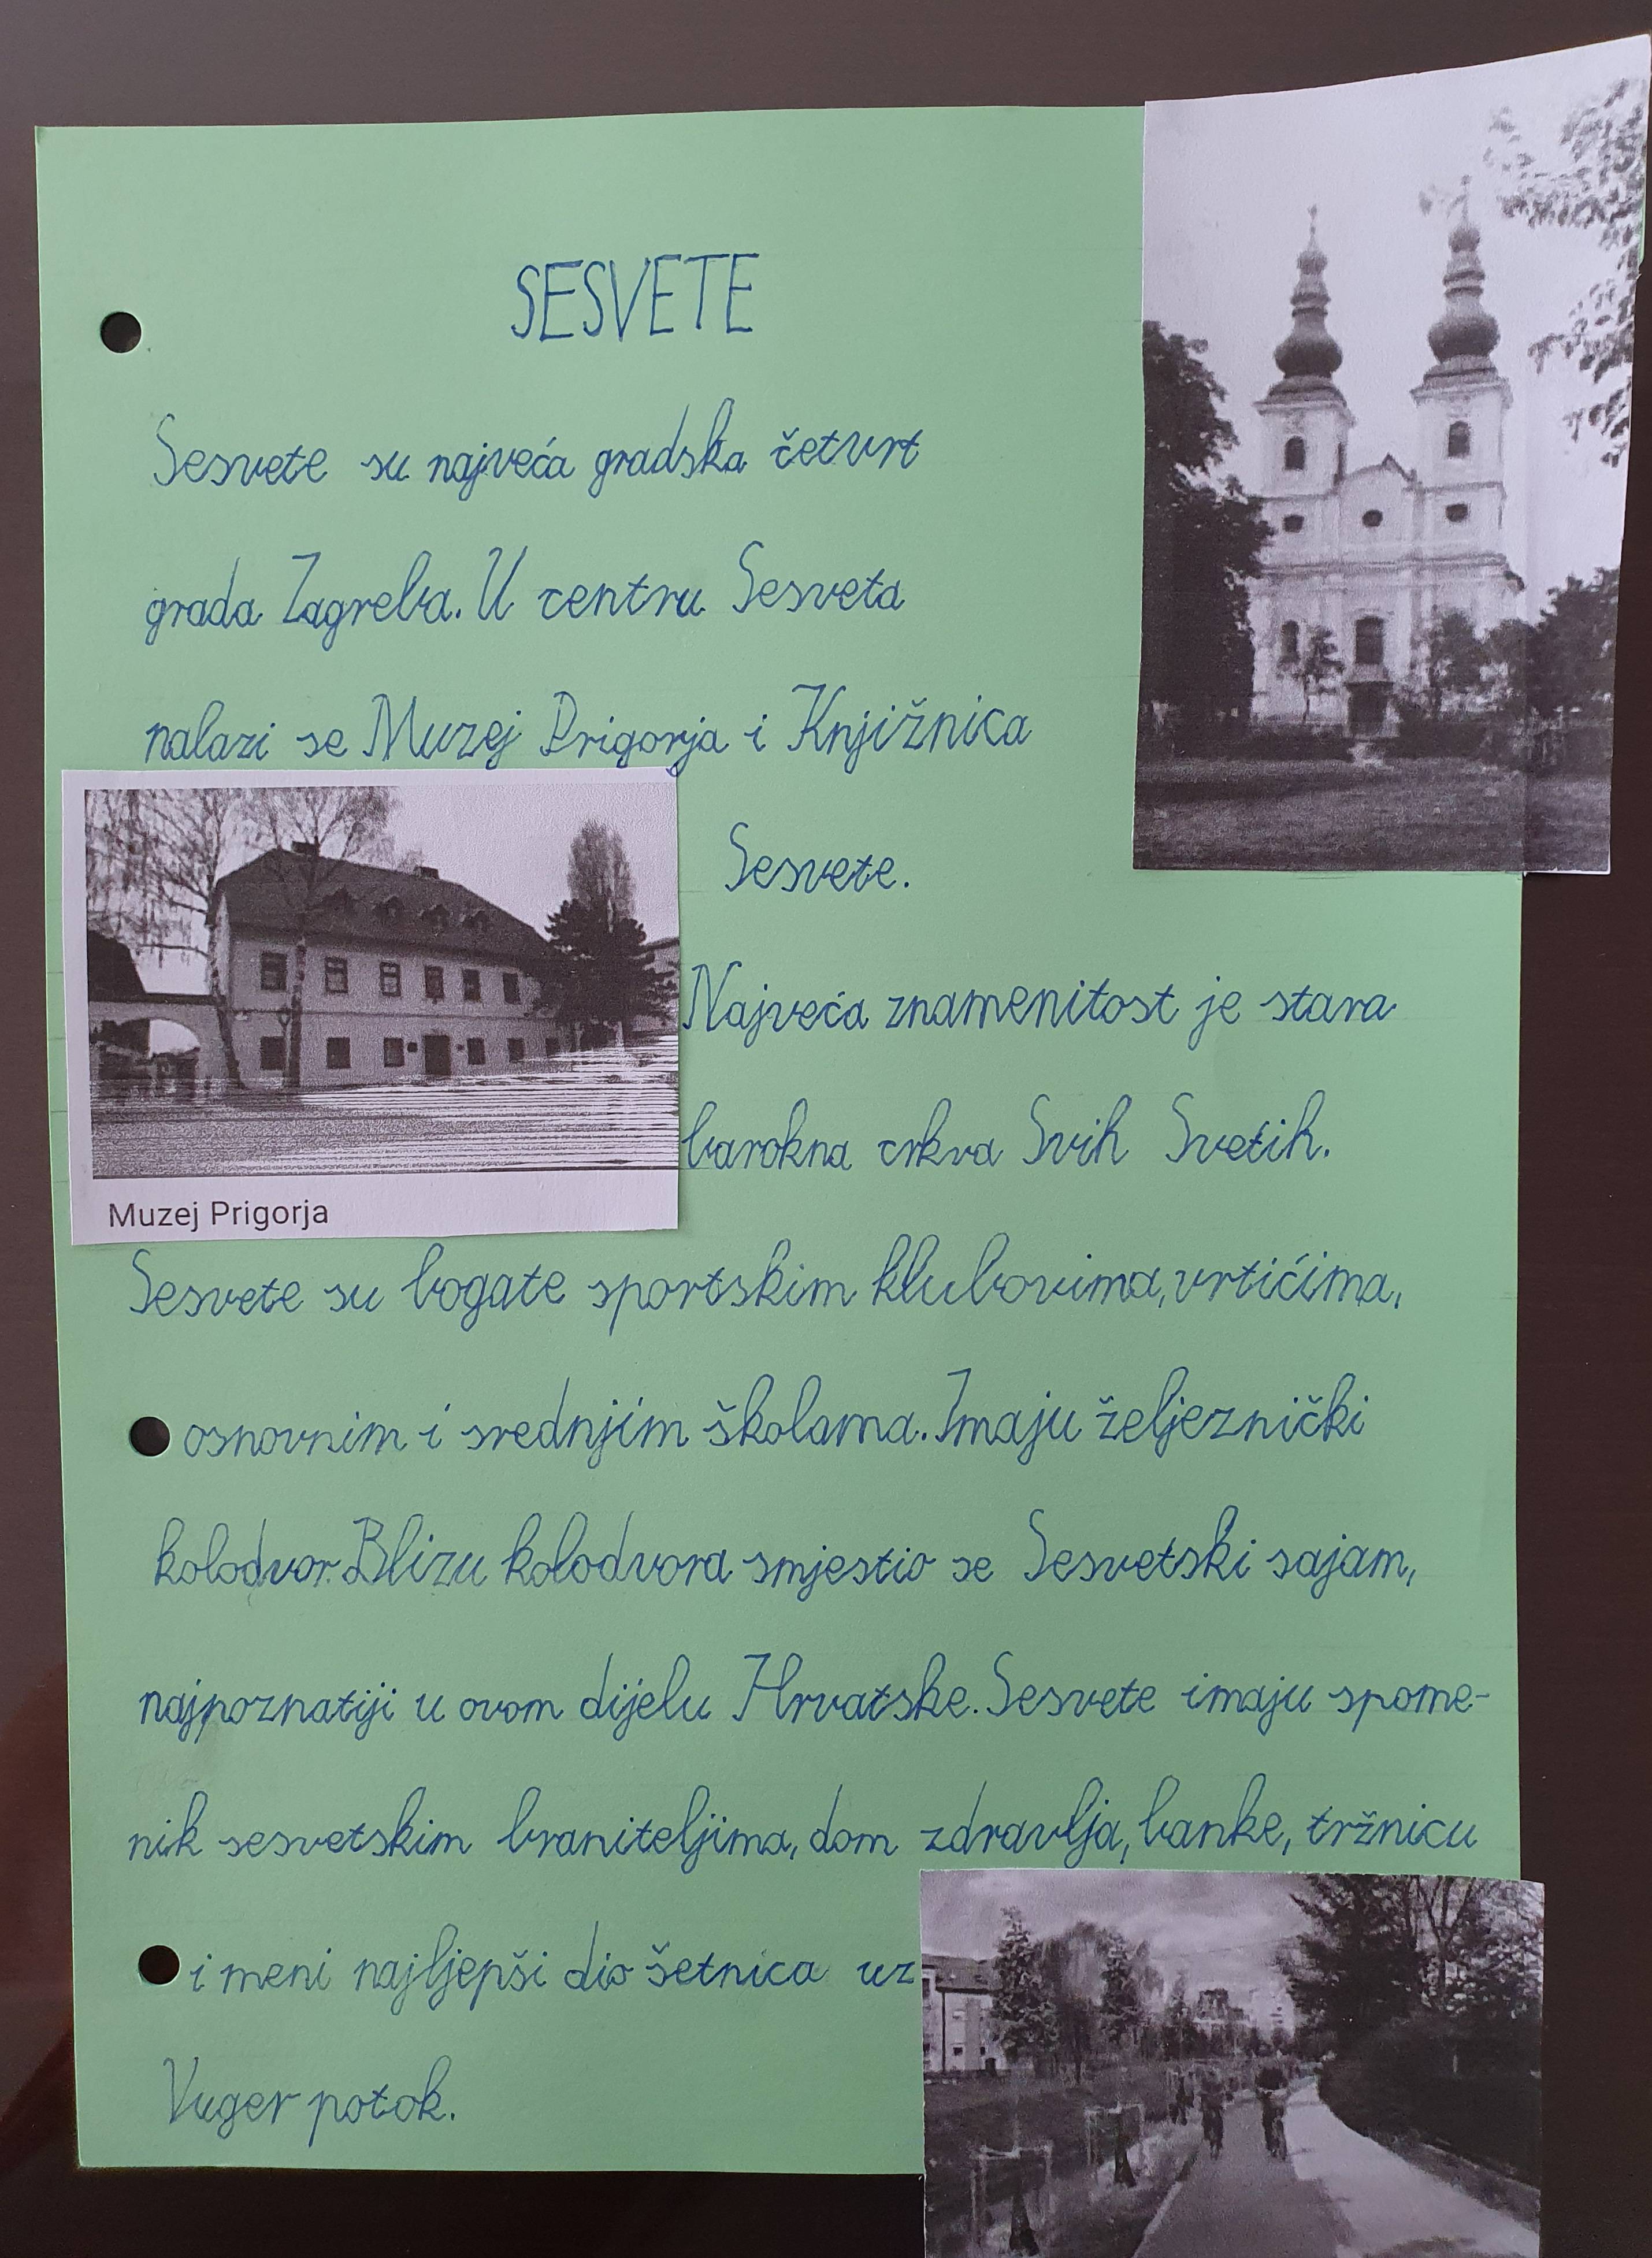 SESVETE
Sesvete su najveća gradska četvrt
grada Zagreba. U centru Sesveta
nalazi se Muzej Prigorja i Knjižnica
Sesvete.
Najveća znamenitost je stara
barokna crkva Svih Svetih.
Muzej Prigorja
Sesvete su bogate sportskim klubovima, vrtićima,
osnovnim i srednjim školama. Imaju željeznički
kolodvor. Blizu kolodvora smjestio se Sesvetski sajam,
najpoznatiji u ovom dijelu Hrvatske. Sesvete imaju spome-
nik sesvetskim braniteljima, dom zdravlja, banke, tržnicu
i meni najljepši dio šetnica uz
Vuger potok.